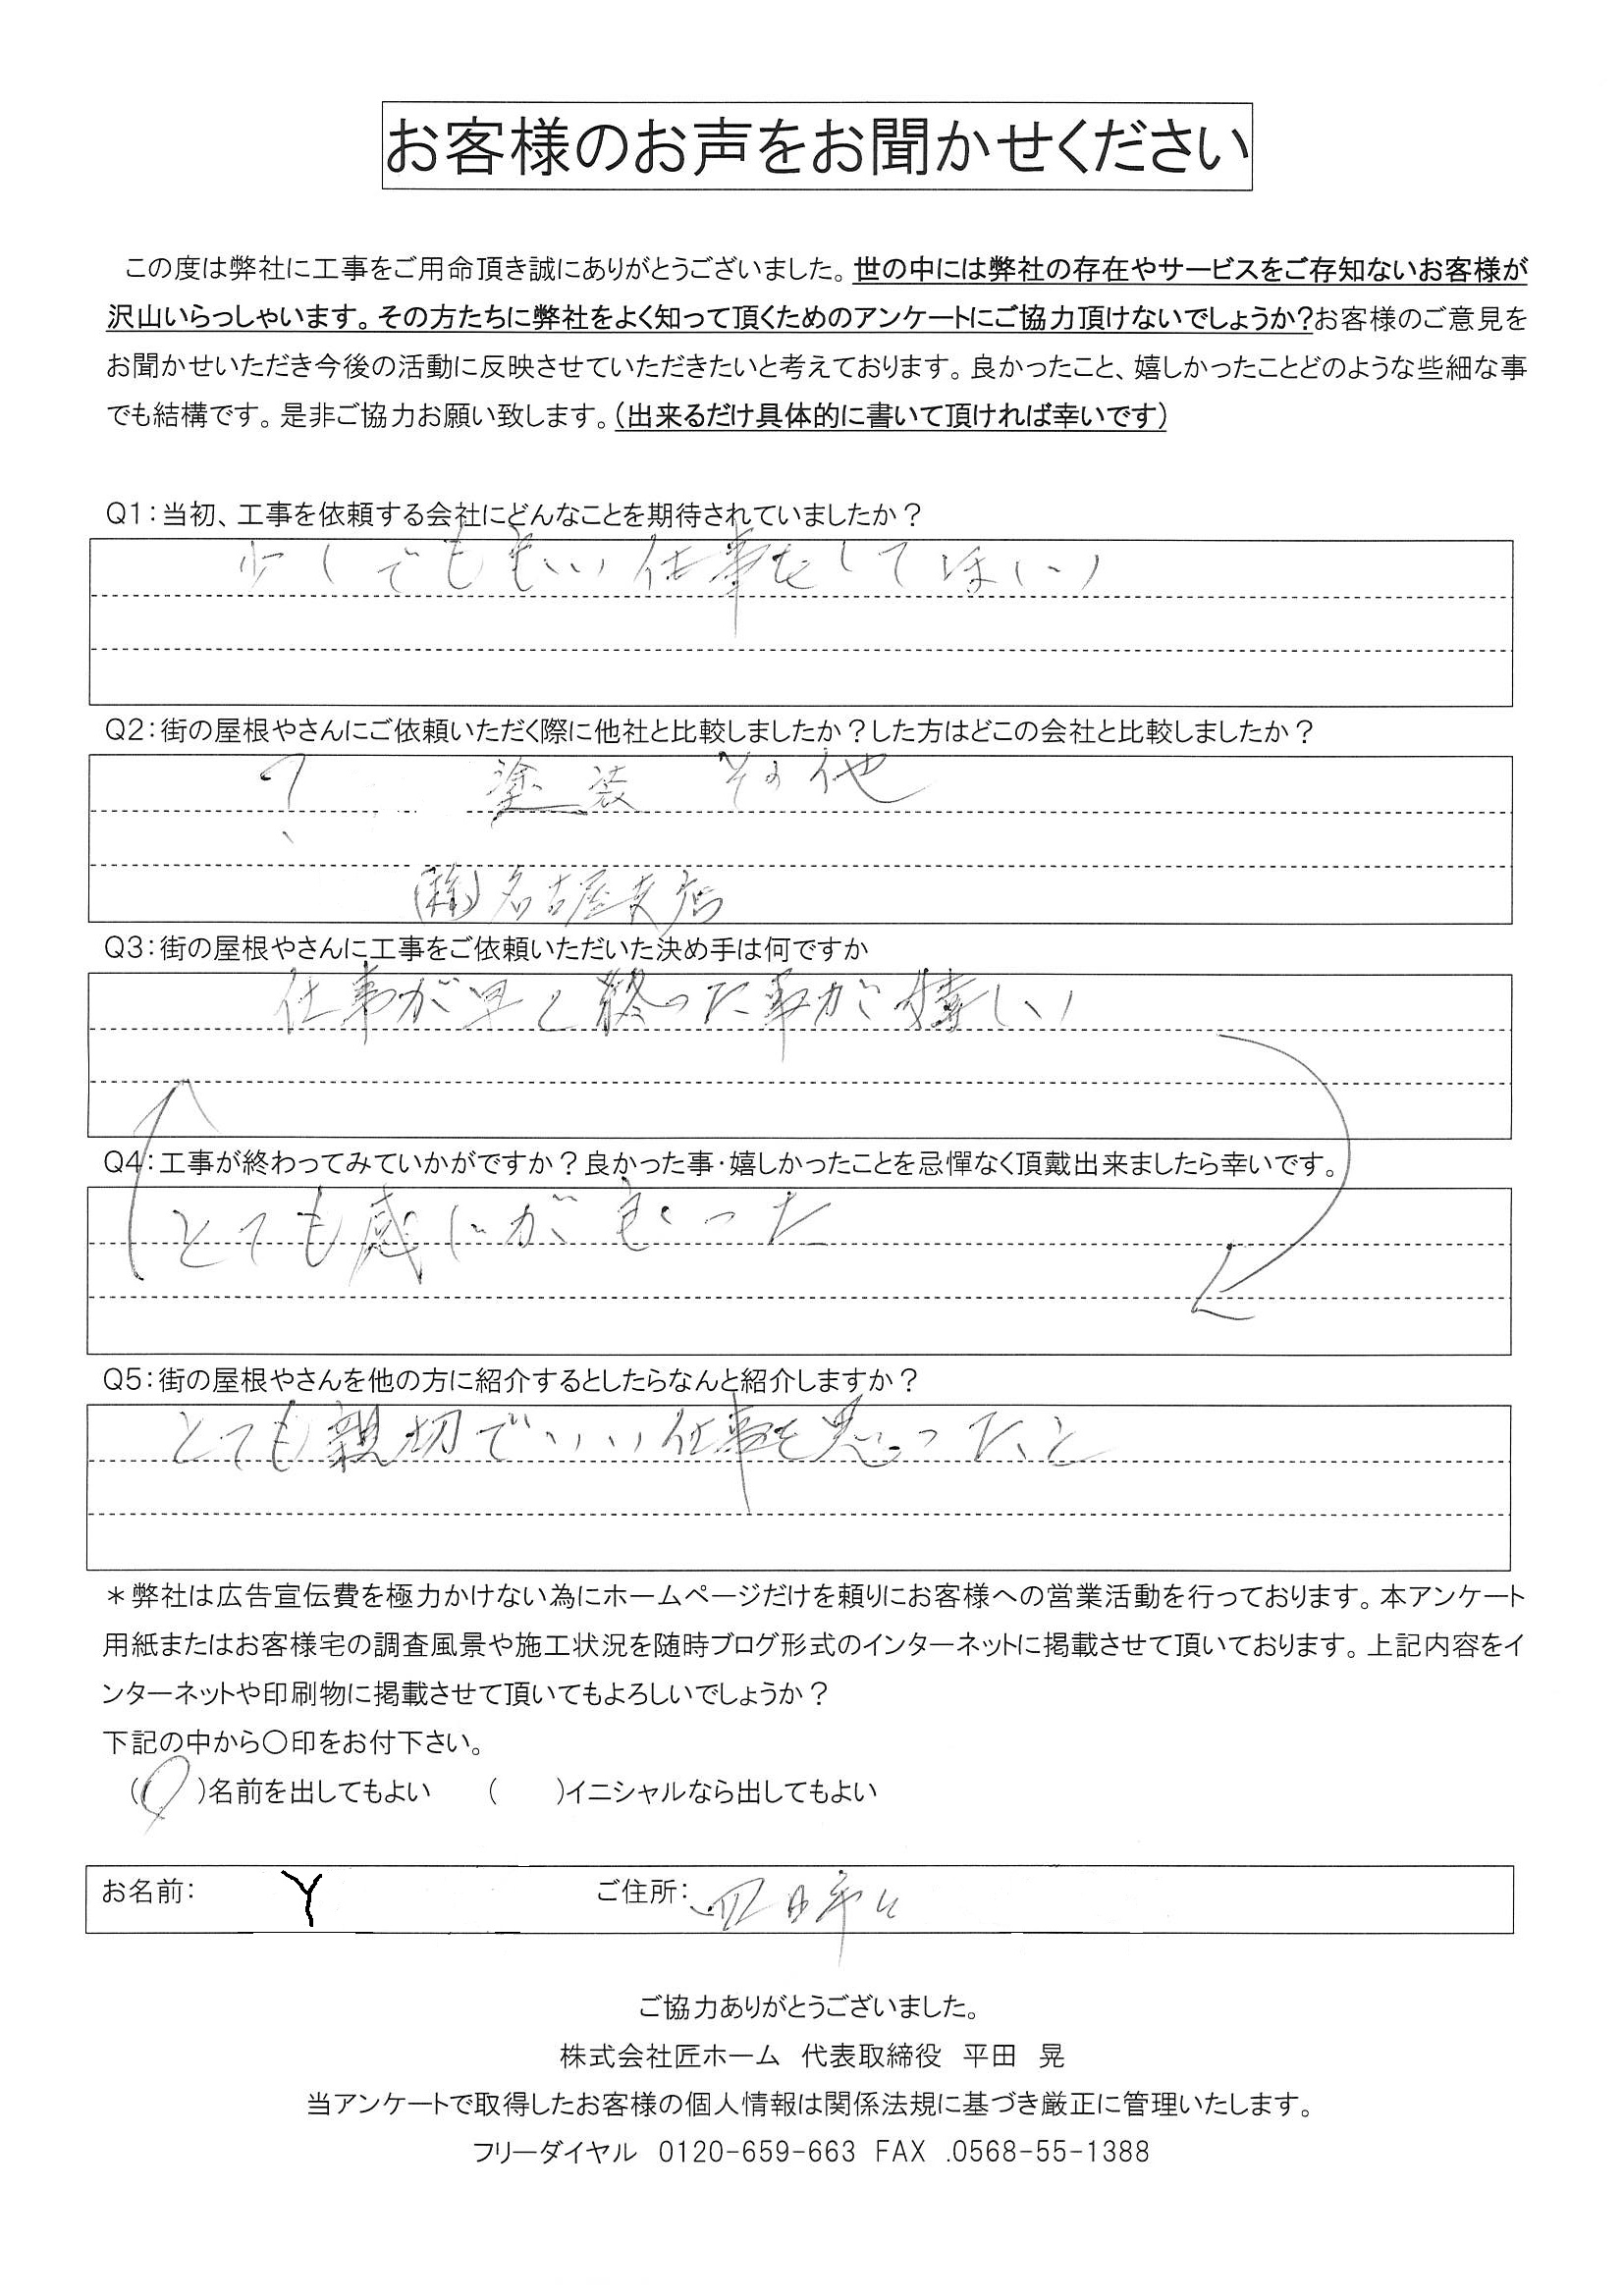 お客様のお声をお聞かせください
この度は弊社に工事をご用命頂き誠にありがとうございました。世の中には弊社の存在やサービスをご存知ないお客様が
沢山いらっしゃいます。その方たちに弊社をよく知って頂くためのアンケートにご協力頂けないでしょうか?お客様のご意見を
お聞かせいただき今後の活動に反映させていただきたいと考えております。良かったこと、嬉しかったことどのような些細な事
でも結構です。是非ご協力お願い致します。(出来るだけ具体的に書いて頂ければ幸いです)
Q1:当初、工事を依頼する会社にどんなことを期待されていましたか?
少しでも良い仕事をしてほしい
Q2:街の屋根やさんにご依頼いただく際に他社と比較しましたか?した方はどこの会社と比較しましたか?
? 塗装 その他
(株)名古屋支店
Q3:街の屋根やさんに工事をご依頼いただいた決め手は何ですか
仕事が早く終った事が嬉しい
Q4:工事が終わってみていかがですか?良かった事・嬉しかったことを忌憚なく頂戴出来ましたら幸いです。
とても感じが良かった
Q5:街の屋根やさんを他の方に紹介するとしたらなんと紹介しますか?
とても親切でいい仕事を思ったと
*弊社は広告宣伝費を極力かけない為にホームページだけを頼りにお客様への営業活動を行っております。本アンケート
用紙またはお客様宅の調査風景や施工状況を随時ブログ形式のインターネットに掲載させて頂いております。上記内容をイ
ンターネットや印刷物に掲載させて頂いてもよろしいでしょうか?
下記の中から〇印をお付下さい。
(〇)名前を出してもよい ( )イニシャルなら出してもよい
お名前: Y ご住所: 四日市
ご協力ありがとうございました。
株式会社匠ホーム 代表取締役 平田 晃
当アンケートで取得したお客様の個人情報は関係法規に基づき厳正に管理いたします。
フリーダイヤル 0120-659-663 FAX .0568-55-1388